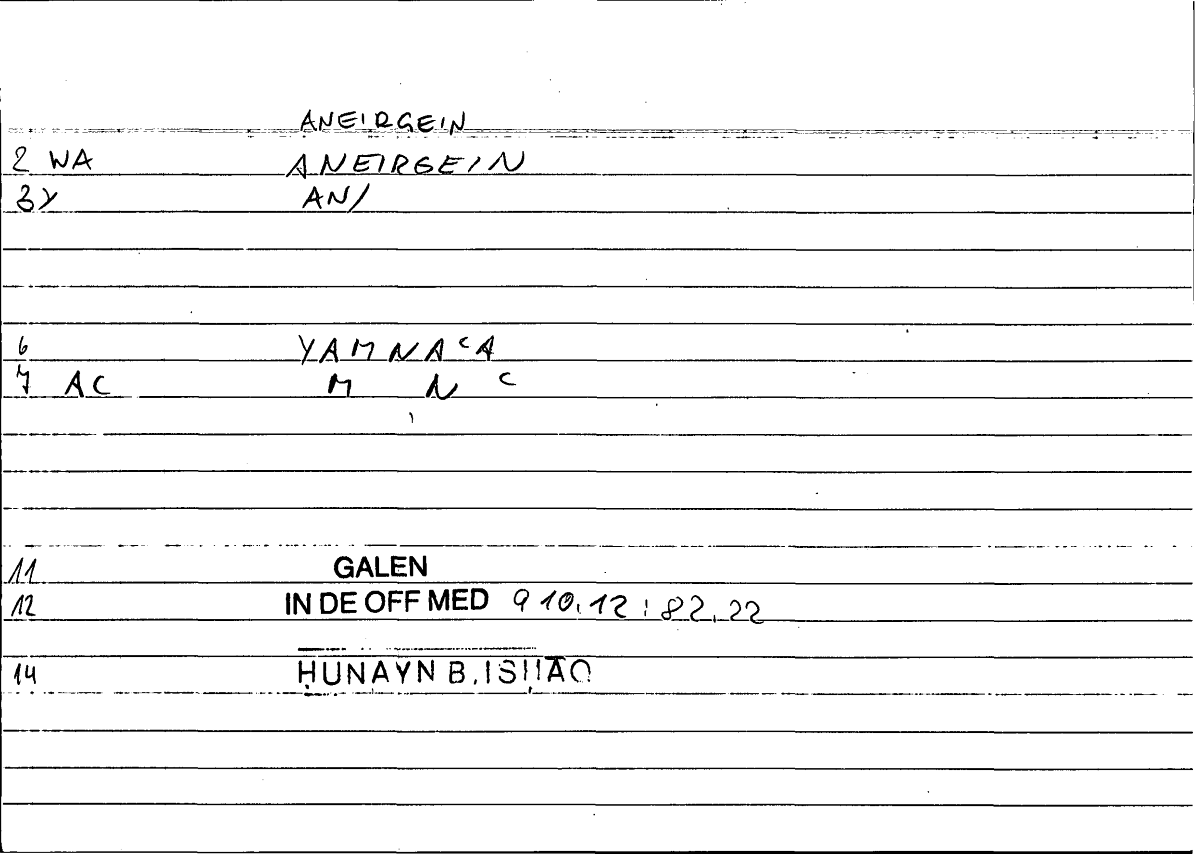 ANEIRGEIN
2 WA ANEIRGEIN
3Y AN/
6 YAMNAʿA
7 AC M N ʿ
11 GALEN
12 IN DE OFF MED 9 10,12 : 82,22
14 ḤUNAYN B. ISḤĀQ